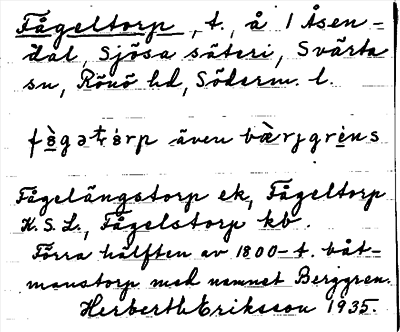 Fågeltorp, t. å 1 Åsen-
dal, Sjösa säteri, Svärta
sn, Rönö hd, Söderm. l.
fòga tórp även bæ̀rjgréns
Fågelängstorp ek, Fågeltorp
H.S.L., Fågelstorp kb.
Förra hälften av 1800-t. båt-
manstorp med namnet Berggren.
Herberth Eriksson 1935.